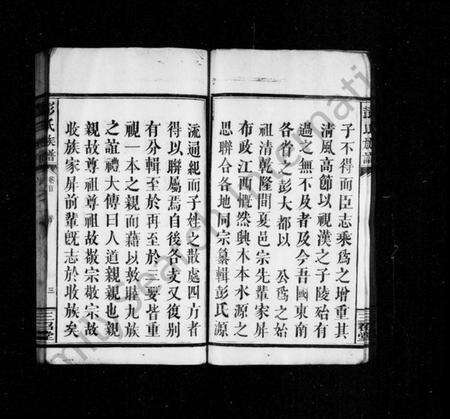 子不得而臣志乘爲之增重其
清風高節以視漢之子陵殆有
過之無不及者及今吾國東南
各省之彭大都以　公爲之始
祖清乾隆間夏邑宗先輩家屏
布政江西慨然興木本水源之
思聯合各地同宗纂輯彭氏源
流通親而子姓之散處四方者
得以聯屬焉自後各支又復别
有分輯至於再至於三要皆重
視一本之親而藉以敦睦九族
之誼禮大傳曰人道親親也親
親故尊祖尊祖故敬宗敬宗故
收族家屏前輩旣志於收族矣
彭氏族譜
卷首
三
彭氏族譜